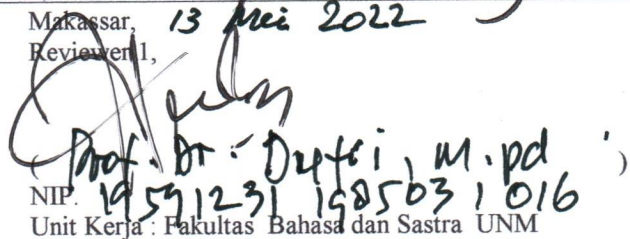 Makassar, 13 Mei 2022
Reviewer 1,
( Prof. Dr. M.pd )
NIP. 19591231 198503 1 016
Unit Kerja : Fakultas Bahasa dan Sastra UNM